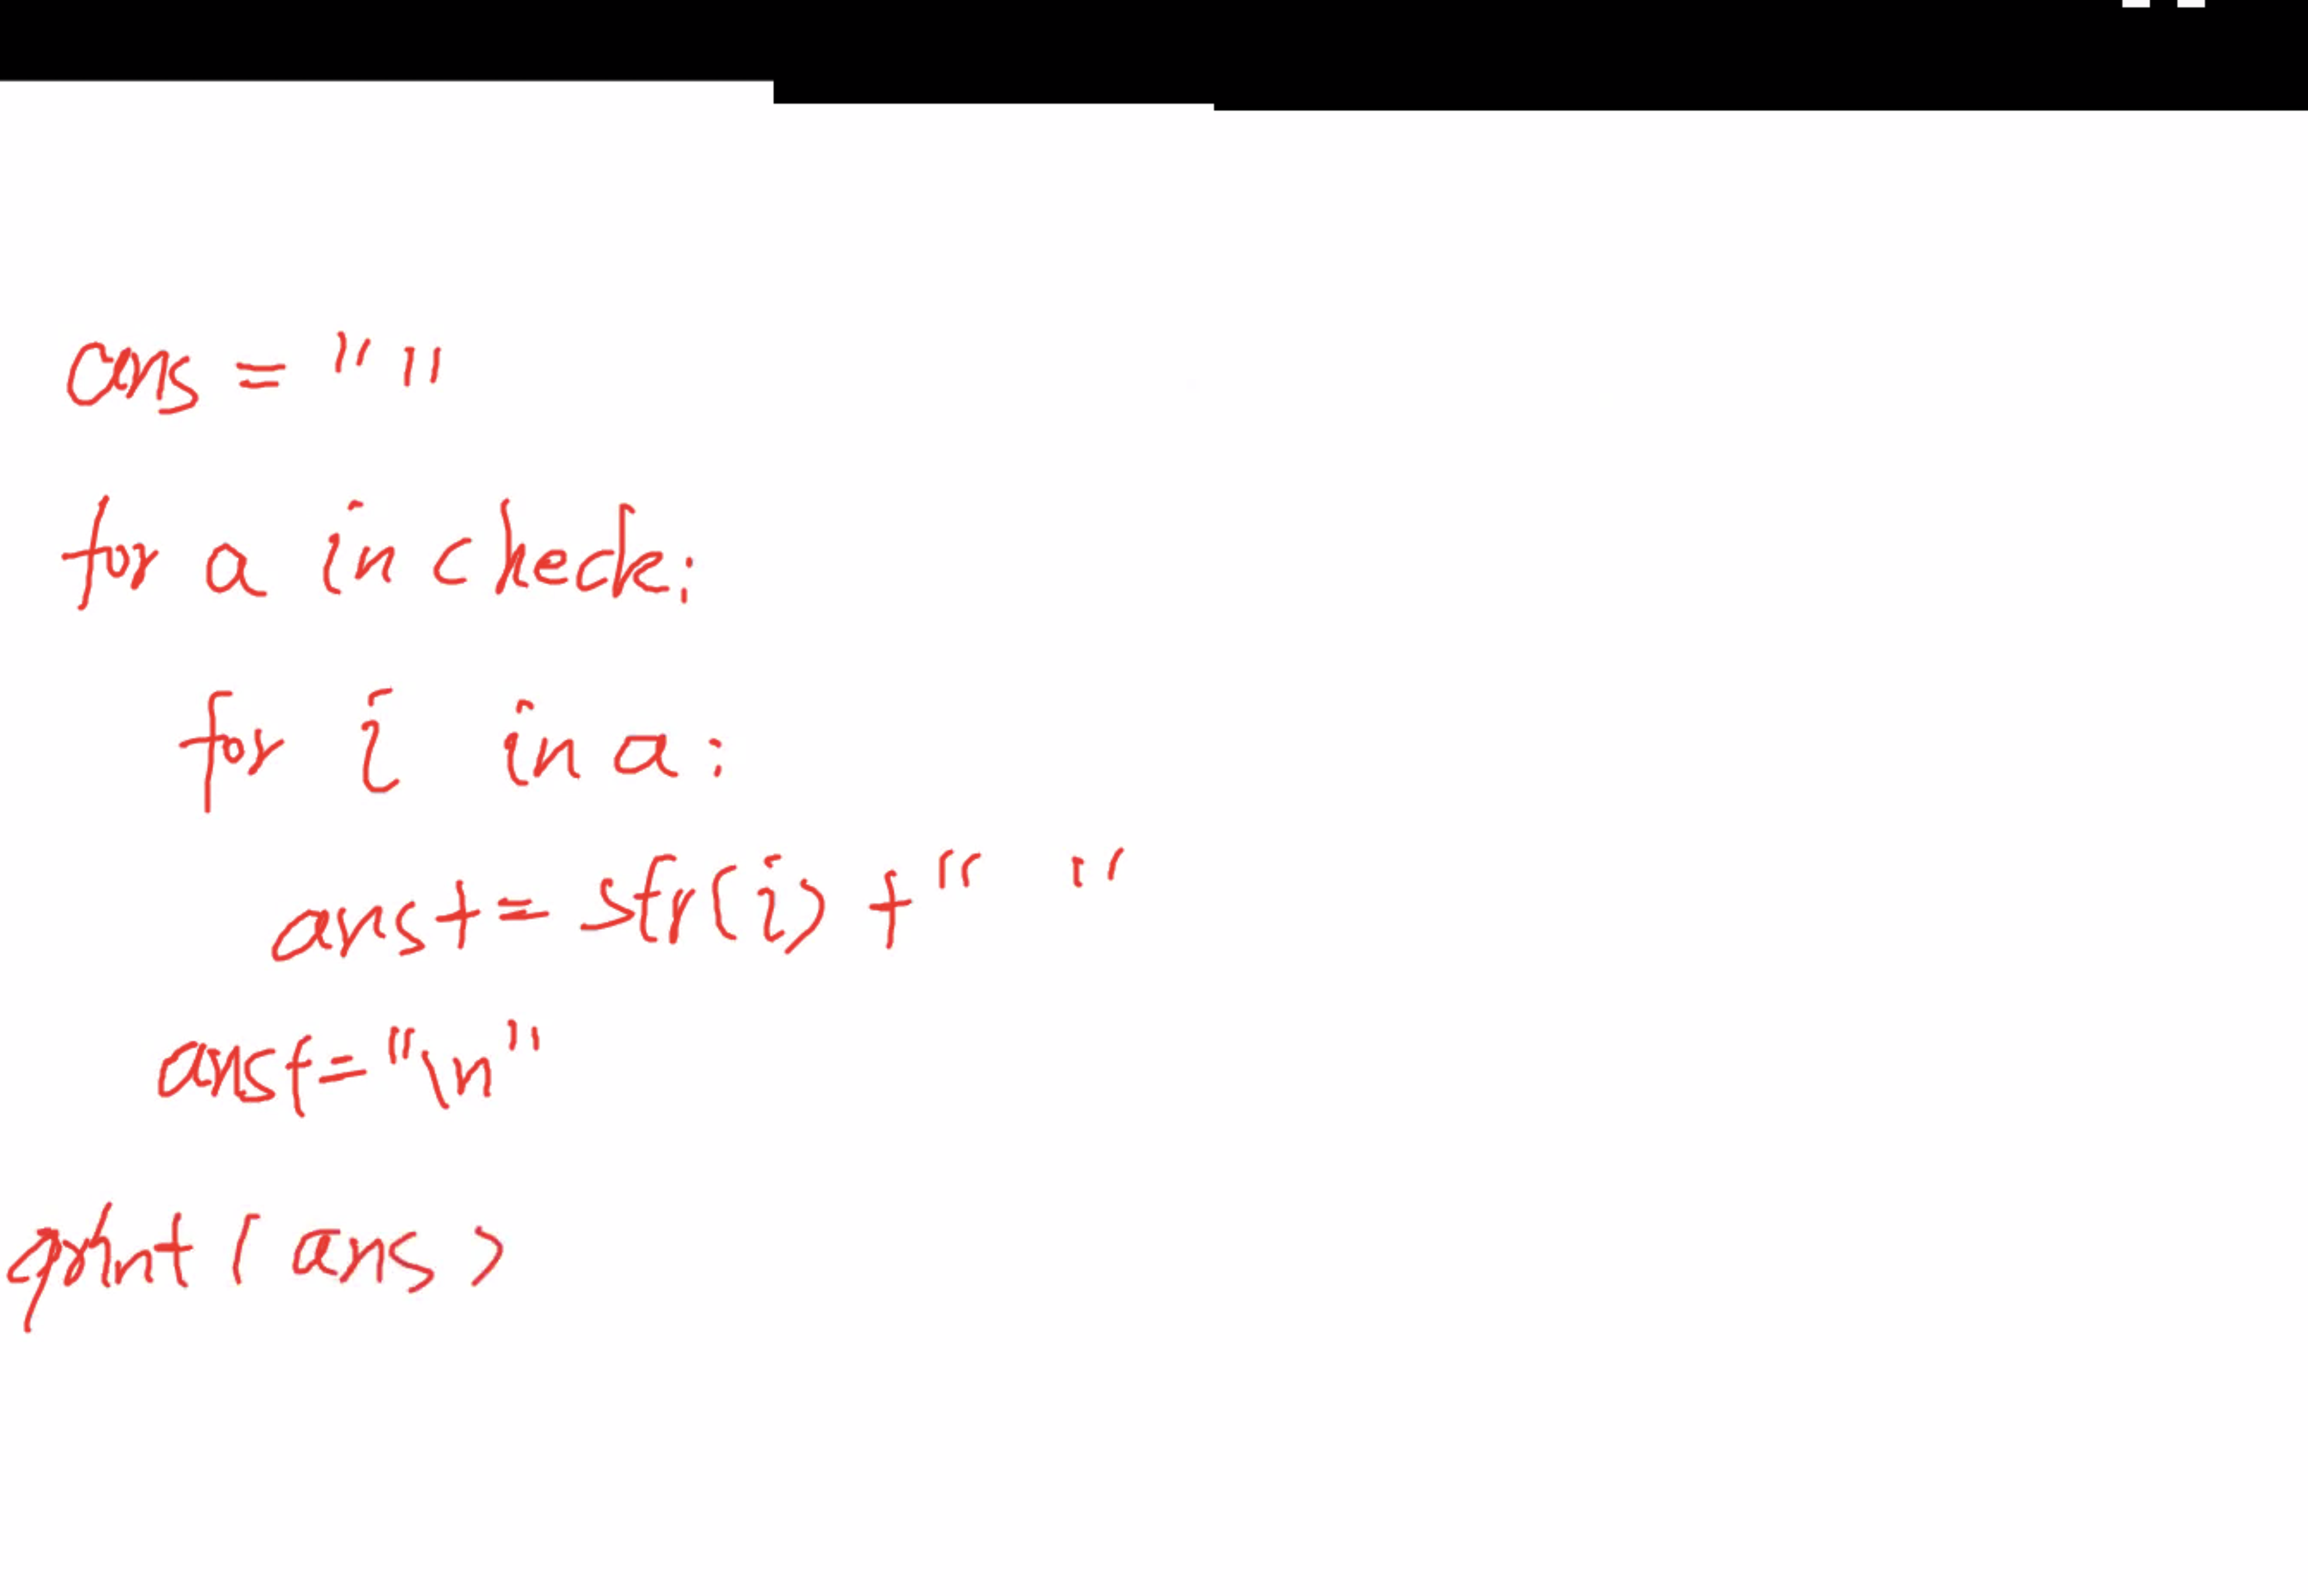 ans = ""
for a in check:
for i in a:
ans += str(i) + " "
ans += "\n"
print(ans)